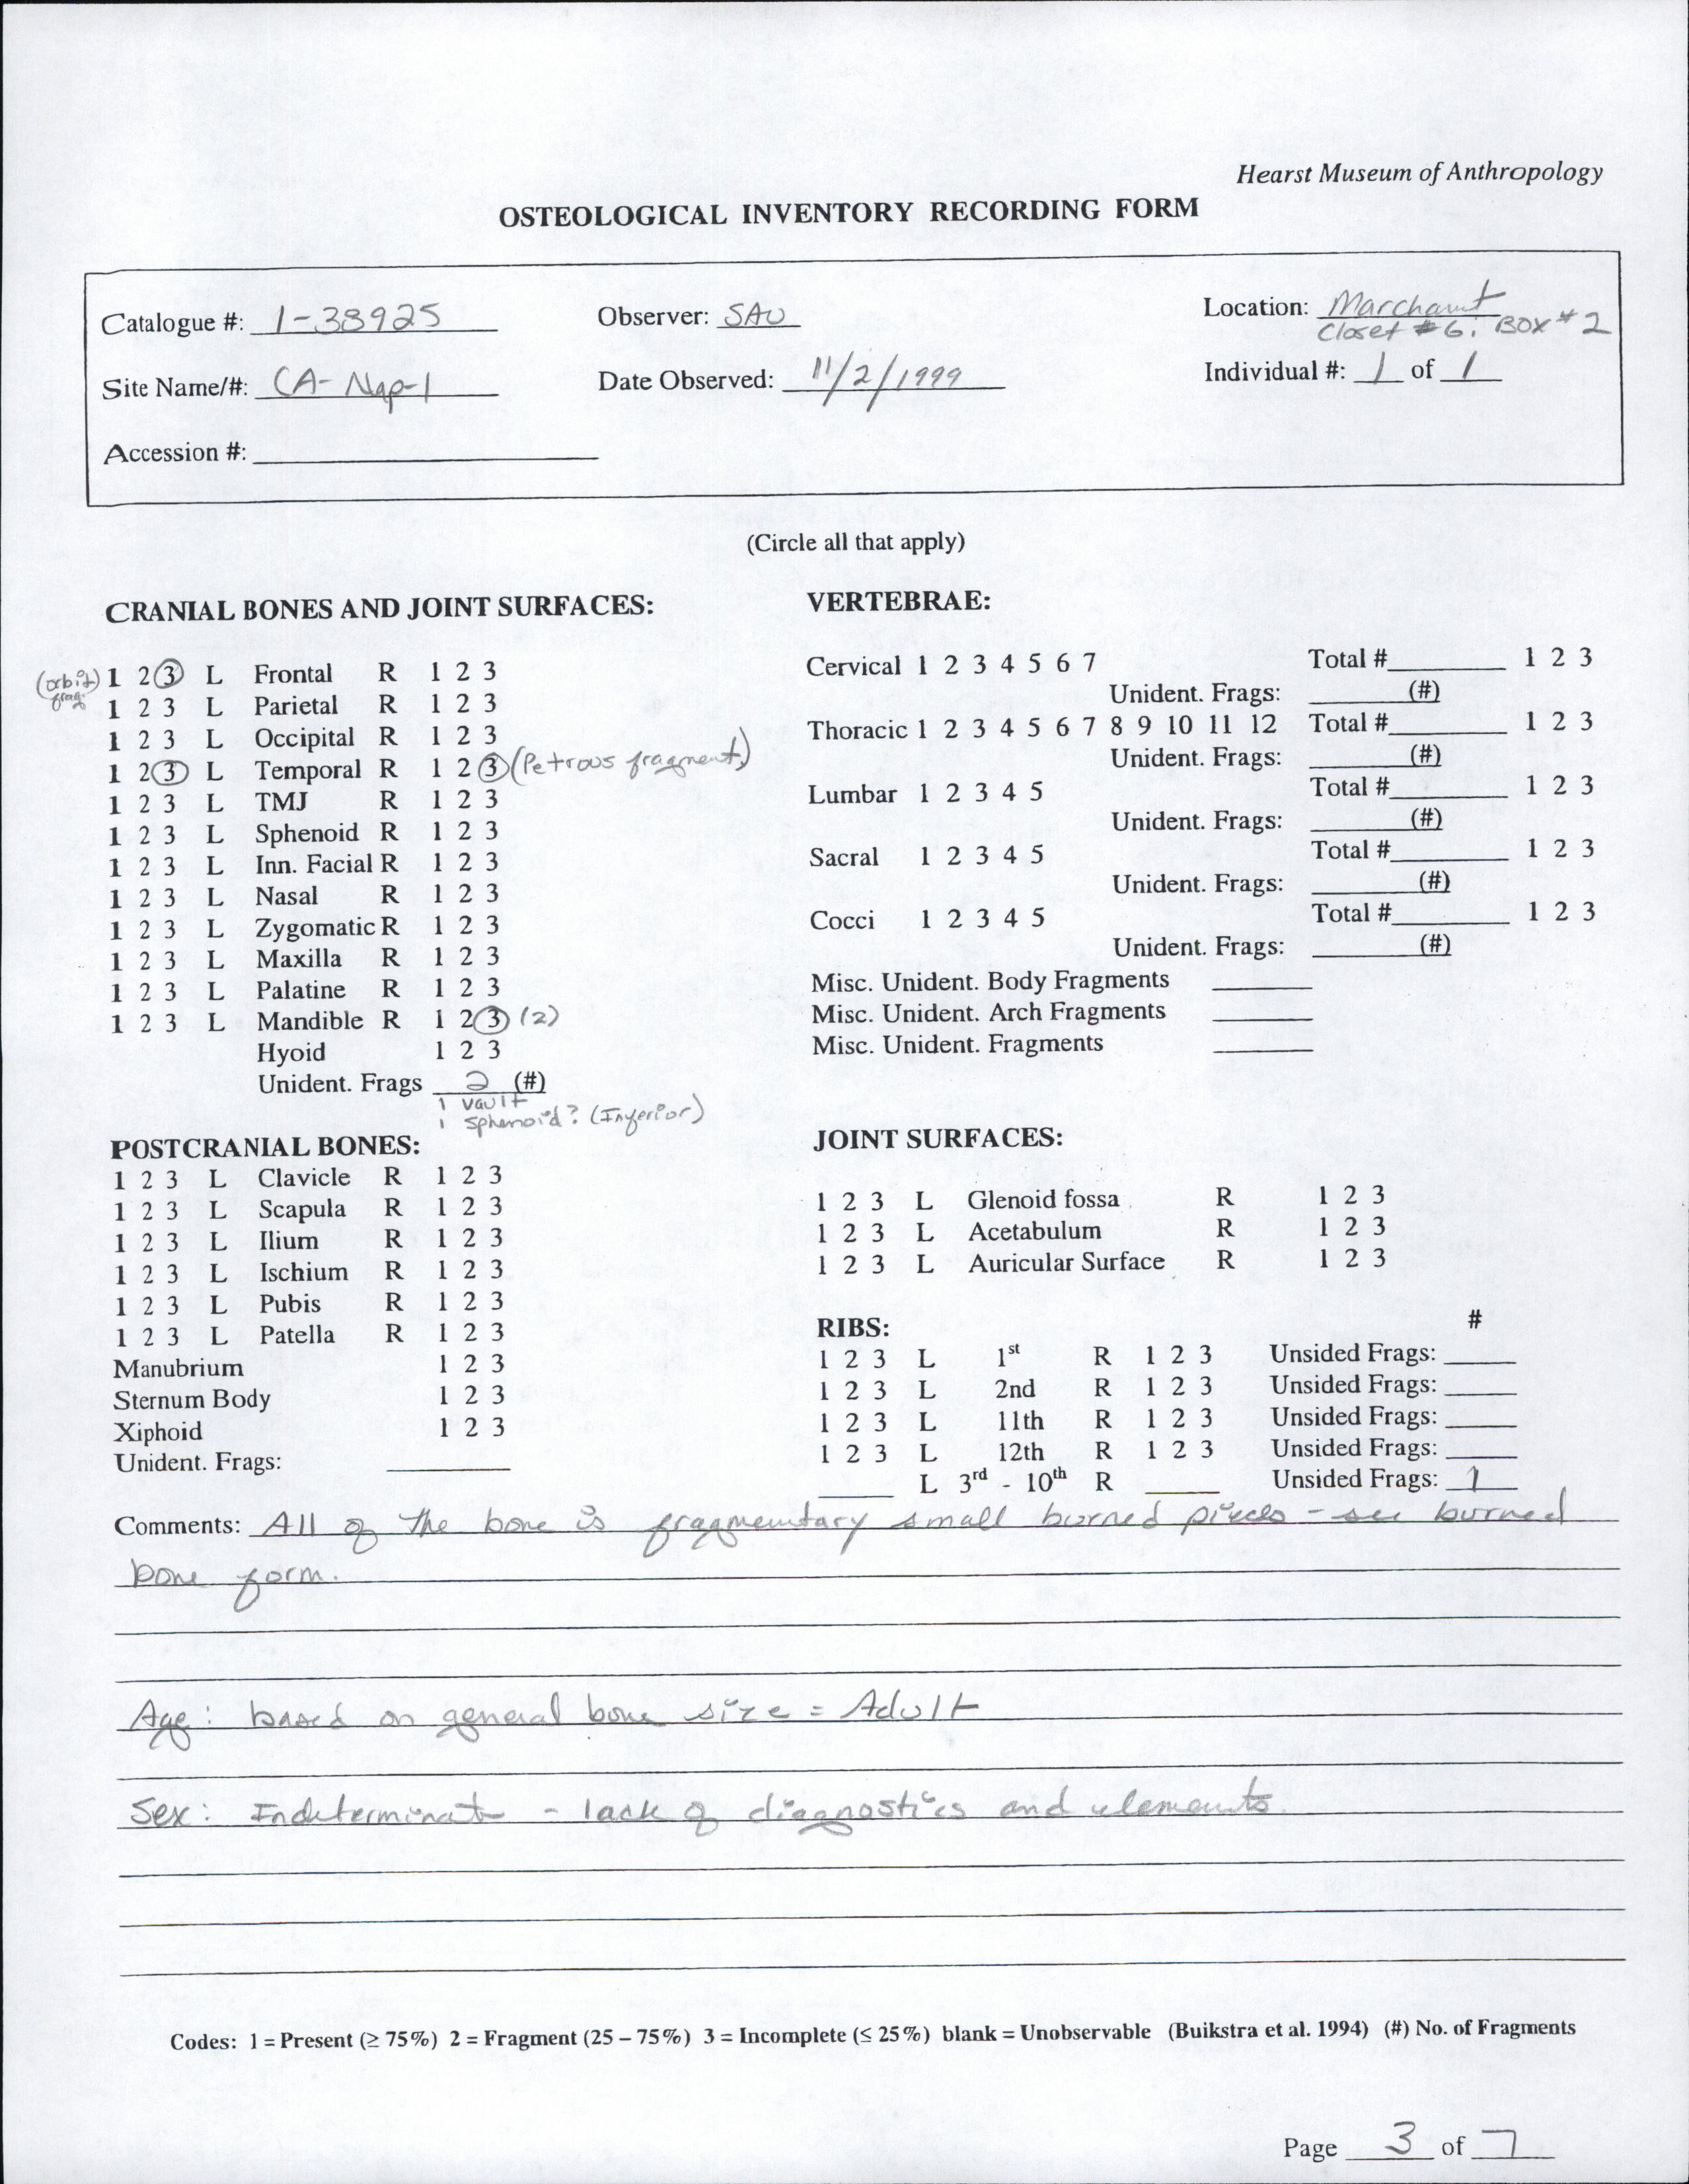 Hearst Museum of Anthropology
OSTEOLOGICAL INVENTORY RECORDING FORM
Catalogue #: 1-38925 Observer: SAU Location: Marchant
Closet #6, BOX #2
Site Name/#: CA-Nap-1 Date Observed: 11/2/1999 Individual #: 1 of 1
Accession #:
(Circle all that apply)
CRANIAL BONES AND JOINT SURFACES:
(orbit frag.) 1 2 3 L Frontal R 1 2 3
1 2 3 L Parietal R 1 2 3
1 2 3 L Occipital R 1 2 3
1 2 3 L Temporal R 1 2 3 (Petrous fragment)
1 2 3 L TMJ R 1 2 3
1 2 3 L Sphenoid R 1 2 3
1 2 3 L Inn. Facial R 1 2 3
1 2 3 L Nasal R 1 2 3
1 2 3 L Zygomatic R 1 2 3
1 2 3 L Maxilla R 1 2 3
1 2 3 L Palatine R 1 2 3
1 2 3 L Mandible R 1 2 3 (2)
Hyoid 1 2 3
Unident. Frags 2 (#)
1 vault
1 sphenoid? (Inferior)
VERTEBRAE:
Cervical 1 2 3 4 5 6 7 Total # 1 2 3
Unident. Frags: (#)
Thoracic 1 2 3 4 5 6 7 8 9 10 11 12 Total # 1 2 3
Unident. Frags: (#)
Lumbar 1 2 3 4 5 Total # 1 2 3
Unident. Frags: (#)
Sacral 1 2 3 4 5 Total # 1 2 3
Unident. Frags: (#)
Cocci 1 2 3 4 5 Total # 1 2 3
Unident. Frags: (#)
Misc. Unident. Body Fragments
Misc. Unident. Arch Fragments
Misc. Unident. Fragments
POSTCRANIAL BONES:
1 2 3 L Clavicle R 1 2 3
1 2 3 L Scapula R 1 2 3
1 2 3 L Ilium R 1 2 3
1 2 3 L Ischium R 1 2 3
1 2 3 L Pubis R 1 2 3
1 2 3 L Patella R 1 2 3
Manubrium 1 2 3
Sternum Body 1 2 3
Xiphoid 1 2 3
Unident. Frags:
JOINT SURFACES:
1 2 3 L Glenoid fossa R 1 2 3
1 2 3 L Acetabulum R 1 2 3
1 2 3 L Auricular Surface R 1 2 3
RIBS: #
1 2 3 L 1st R 1 2 3 Unsided Frags:
1 2 3 L 2nd R 1 2 3 Unsided Frags:
1 2 3 L 11th R 1 2 3 Unsided Frags:
1 2 3 L 12th R 1 2 3 Unsided Frags:
L 3rd - 10th R Unsided Frags: 1
Comments: All of the bone is fragmentary small burned pieces - see burned
bone form.
Age: based on general bone size = Adult
Sex: Indeterminate - lack of diagnostics and elements.
Codes: 1 = Present (≥ 75%) 2 = Fragment (25 – 75%) 3 = Incomplete (≤ 25%) blank = Unobservable (Buikstra et al. 1994) (#) No. of Fragments
Page 3 of 7